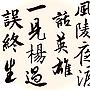 風陵夜渡
話英雄
一見楊過
誤終生